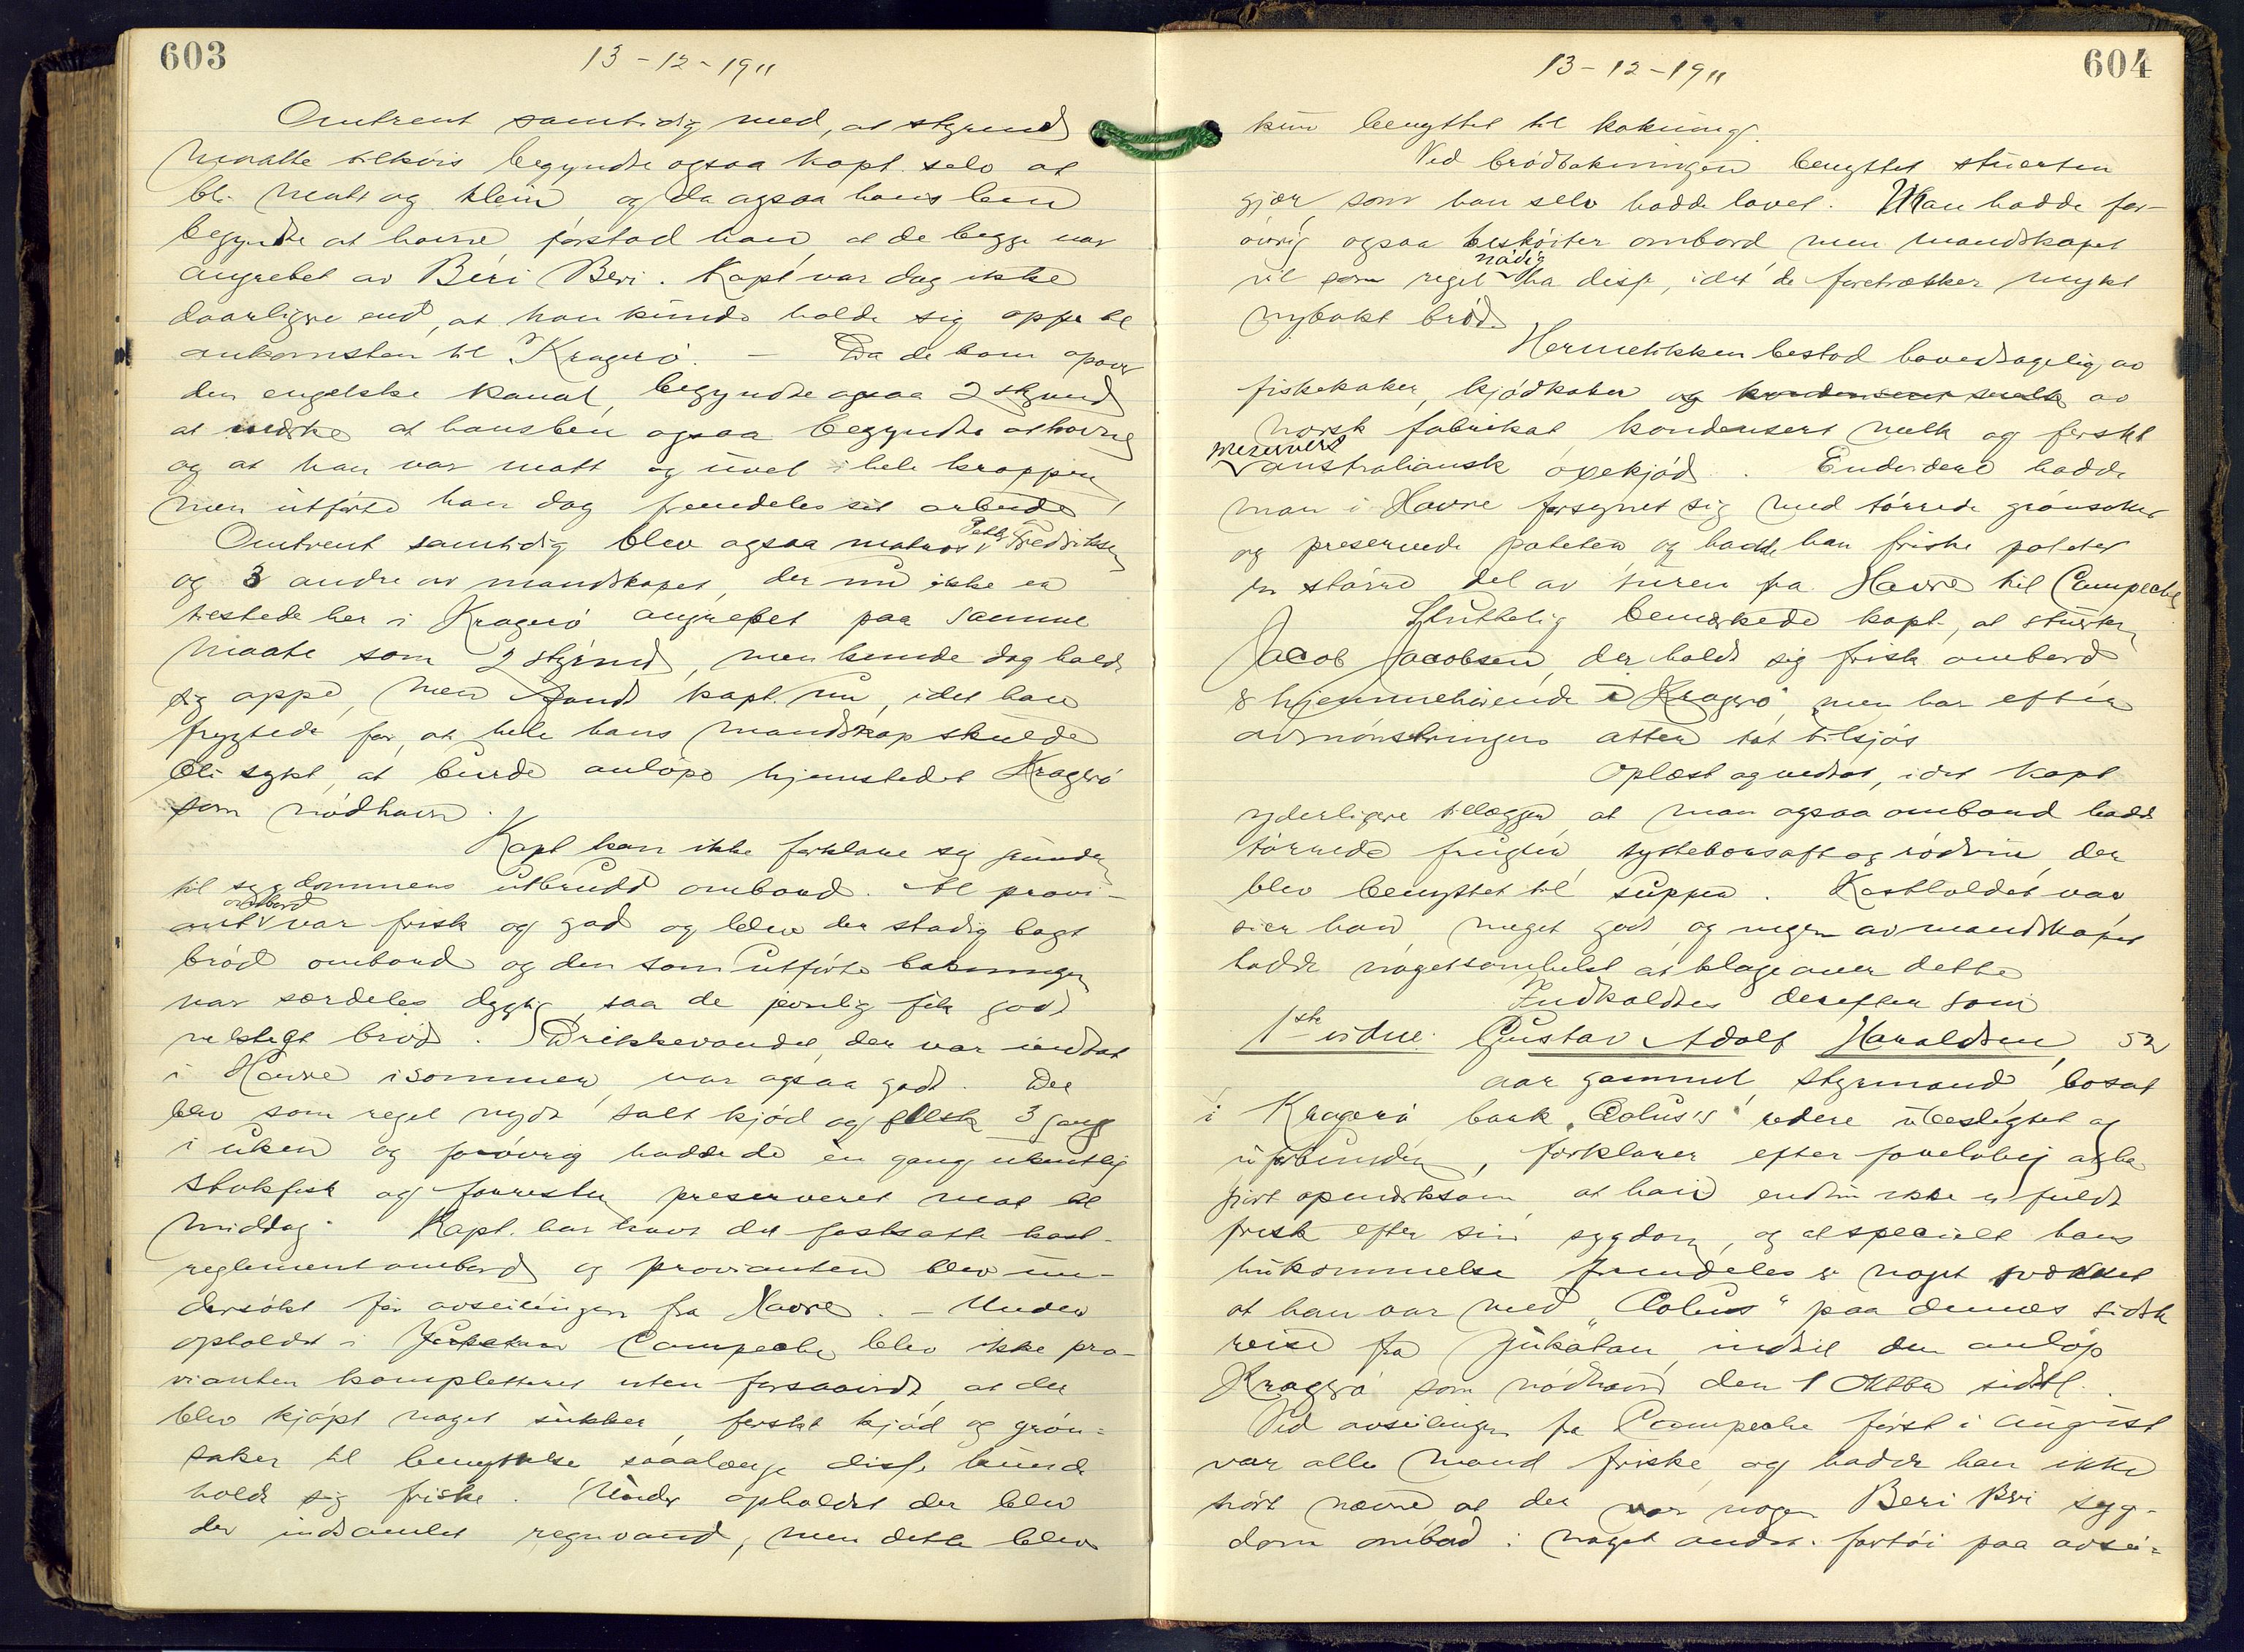 603
13-12-1911
Omtrent samtidig med, at styrmd
maatte tilkøis begyndte ogsaa kapt. selv at
bli matt og klein og da ogsaa hans ben
begyndte at hovne forstod han at de begge var
angrebet av Béri Beri. Kapt var dog ikke
daarligere end, at han kunde holde sig oppe til
ankomsten til Kragerö. — Da de kom opover
den engelske kanal, begyndte ogsaa 2 styrmd
at merke at hans ben ogsaa begyndte at hovne
og at han var matt og uvel i hele kroppen
men utførte han dog fremdeles sit arbeide,
Omtrent samtidig blev ogsaa matros Fredriksen
og 3 andre av mandskapet, der nu ikke er
tilstede her i Kragerö angrepet paa samme
maate som 2 styrmd, men kunde dog holde
sig oppe, men fandt kapt. nu, idet han
frygtede for, at hele hans mandskap skulde
bli sykt, at burde anløpe hjemstedet Kragerö
som nödhavn.
Kapt kan ikke forklare sig grunden
til sygdommens utbrudd ombord. Al provi-
ant ombord var frisk og god og blev der stadig bagt
bröd ombord og den som utførte bakningen
var særdeles dygtig, saa de jevnlig fik godt
velstegt bröd. Drikkevandet, der var indtat
i Havre isommer, var ogsaa godt. Der
blev som regel nydt salt kjöd og flesk 3 gang
i uken og forövrig hadde de en gang ukentlig
stokfisk og forresten preserveret mat til
middag. Kapt. har havt det fastsatte kost-
reglement ombord og provianten blev un-
dersökt før avseilingen fra Havre. — Under
opholdet i Campeche blev ikke pro-
vianten kompletteret uten forsaavidt, at der
blev kjöpt noget sukker, ferskt kjöd og grön-
saker til benyttelse saalænge disse kunde
holde sig friske. Under opholdet der blev
der indsamlet regnvand, men dette blev
604
13-12-1911
kun benyttet til kokning.
Ved brödbakningen benyttet stuerten
gjær, som han selv hadde lavet. Man hadde for-
övrig ogsaa besköiter ombord men mandskapet
vil som regel nödig ha disse, idet de foretrækker mykt
nybakt bröd.
Hermetikken bestod hovedsagelig av
fiskekaker, kjödkaker og kondensert melk av
norsk fabrikat kondensert melk og ferskt
preservert australiansk oxekjöd. Endvidere hadde
man i Havre forsynet sig med törrede grönsaker
og preservede poteter og hadde han friske poteter
en större del av turen fra Havre til Campeche
Sluttelig bemerkede kapt, at stuerten
Jacob Jacobsen, der holdt sig frisk ombord
er hjemmehörende i Kragerö, men har efter
avmönstringen atter tat tilsjös
Oplæst og vedtat, idet kapt
yderligere tillægger at man ogsaa ombord hadde
törrede frugter, tyttebærsaft og rödvin, der
blev benyttet til supper. Kostholdet var
sier han meget godt og ingen av mandskapet
hadde nogetsomhelst at klage over dette
Indkaldtes derefter som
1ste vidne: Gustav Adolf Haraldsen, 52
aar gammel, styrmand, bosat
i Kragerö bark „Æolus's" redere ubeslegtet og
uforbunden, forklarer efter foreløbig at ha
git opmerksom, at han endnu ikke er fuldt
frisk efter sin sygdom, og at specielt hans
hukommelse fremdeles er noget svækket
at han var med „Æolus" paa dennes sidste
reise fra Jukatan, indtil den anlöp
Kragerö som nödhavn den 1 Oktbr sidstl.
Ved avseilingen fra Campeche först i August
var alle mand friske og hadde han ikke
hört nævne, at der var nogen Beri Beri syg-
dom ombord i noget andet fartöi paa avsei-